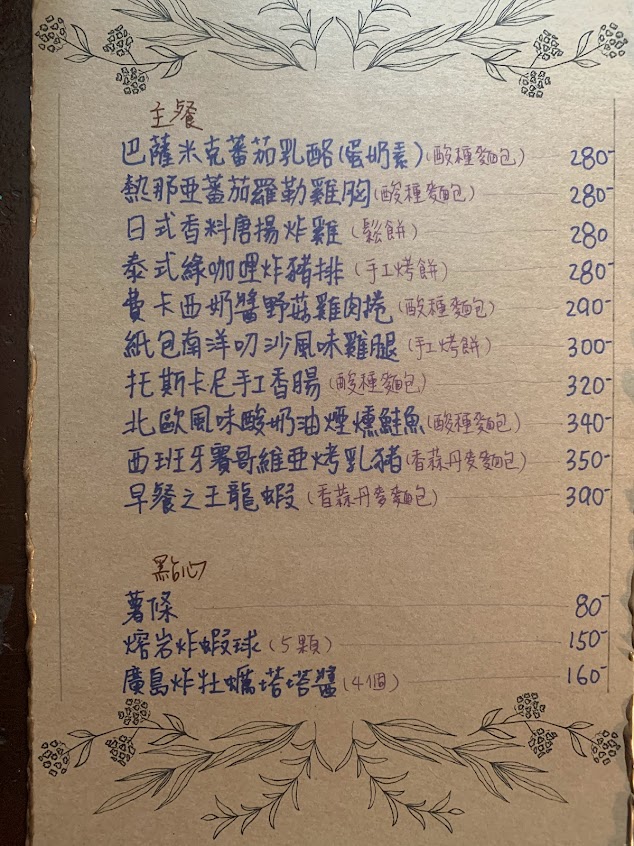 主餐
巴薩米克蕃茄乳酪(蛋奶素)(酸種麵包) 280-
熱那亞蕃茄羅勒雞胸(酸種麵包) 280-
日式香料唐揚炸雞(鬆餅) 280
泰式綠咖哩炸豬排(手工烤餅) 280-
費卡西奶醬野菇雞肉捲(酸種麵包) 290-
紙包南洋叻沙風味雞腿(手工烤餅) 300-
托斯卡尼手工香腸(酸種麵包) 320-
北歐風味酸奶油煙燻鮭魚(酸種麵包) 340-
西班牙賽哥維亞烤乳豬(香蒜丹麥麵包) 350-
早餐之王龍蝦(香蒜丹麥麵包) 390-
點心
薯條 80-
熔岩炸蝦球(5顆) 150-
廣島炸牡蠣塔塔醬(4個) 160-